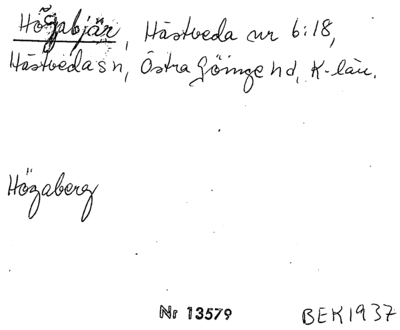 Högabjär, Hästveda nr 6:18,
Hästveda sn, Östra Göinge hd, K-län.
Högaberg
Nr 13579 BEK1937